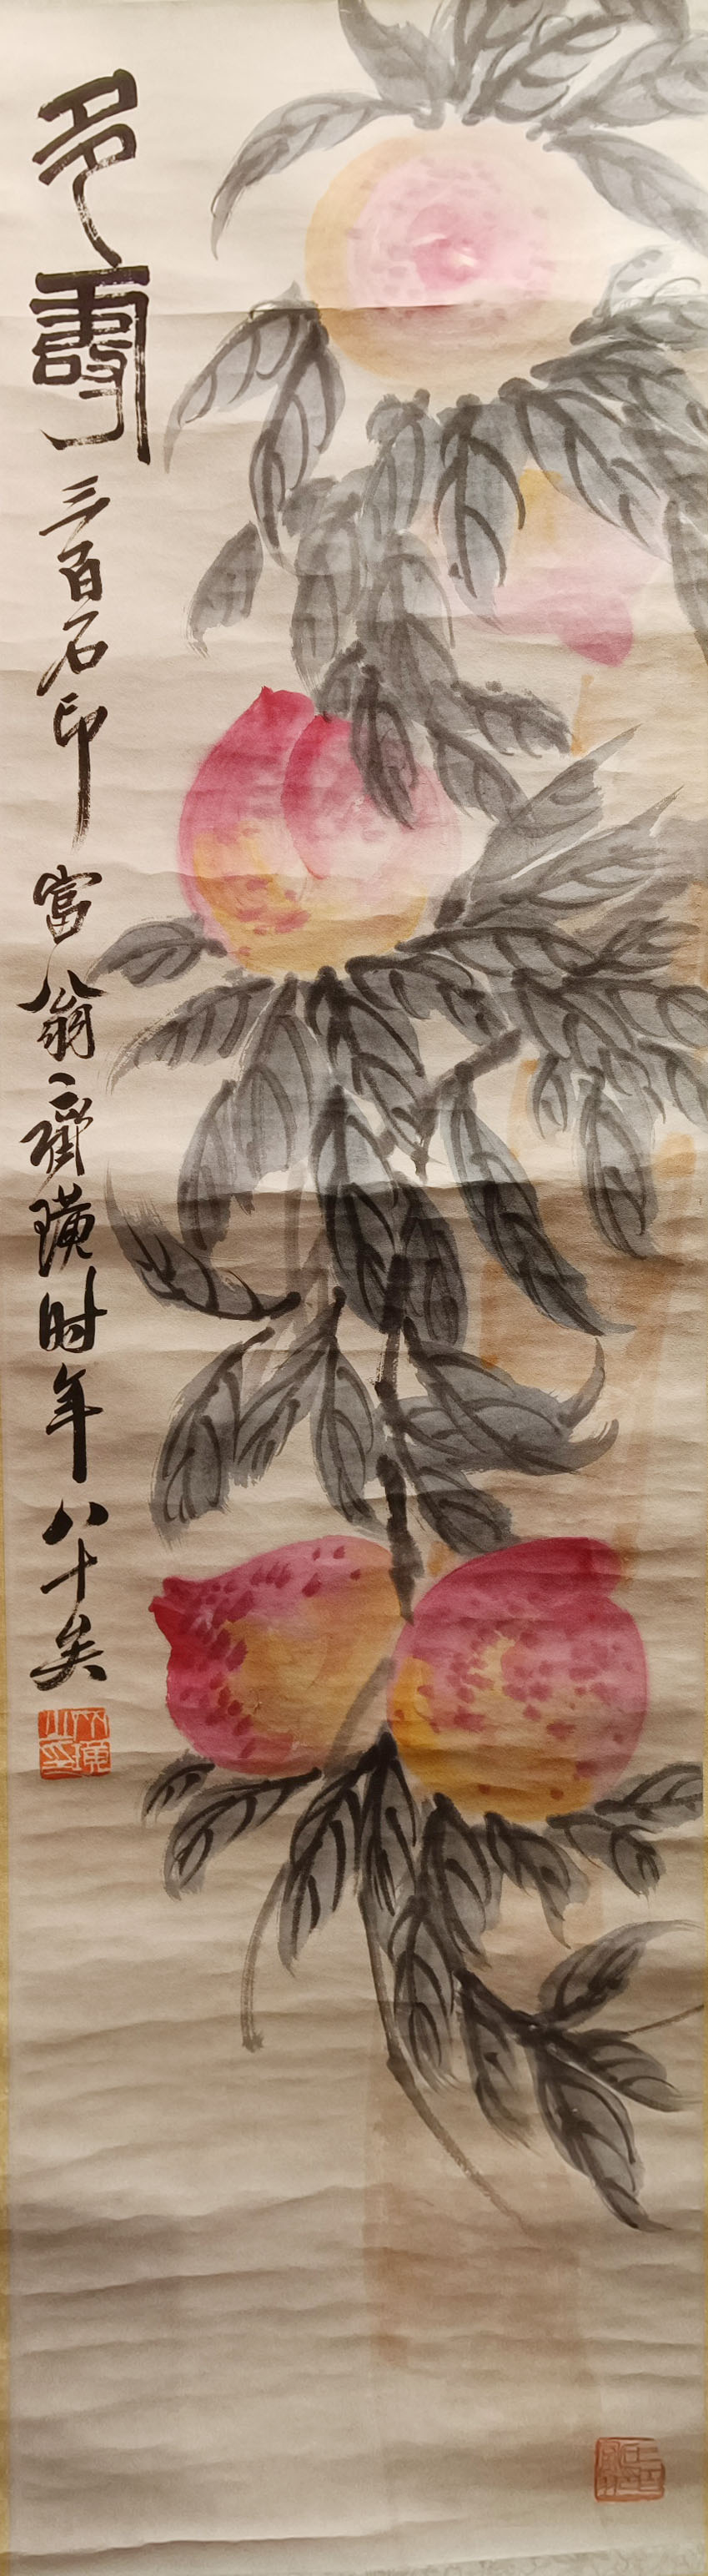 多壽三百石印富翁齊璜时年八十矣